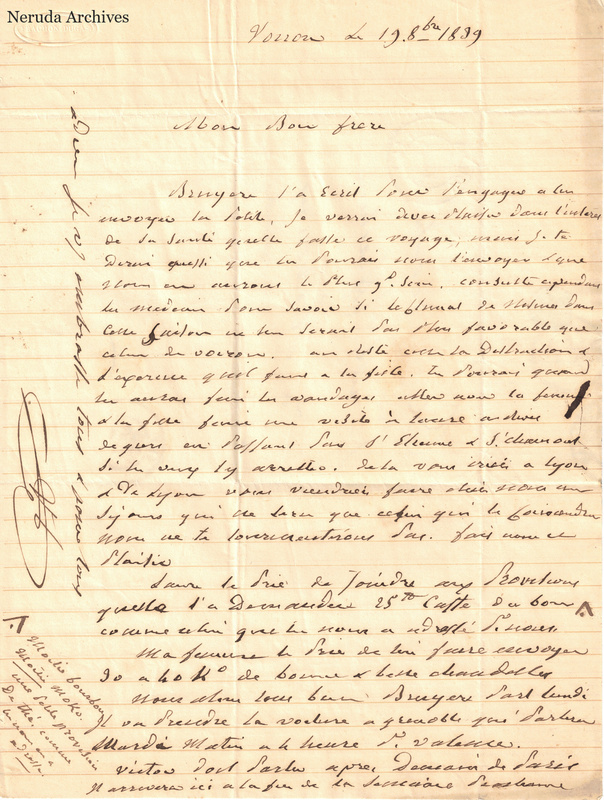 Neruda Archives
Voiron le 19 8bre 1839
Mon Bon frere
Bruyere t'a Ecrit pour t'engager a lui
envoyer la petite, Je verrai avec plaisir dans l'interet
de sa santé qu'elle fasse ce voyage, mais Je te
Dirai aussi que tu pourrais nous l'envoyer & que
nous en aurons le plus gd soin. consulte cependant
les medecins pour savoir si le climat de Nismes dans
cette saison ne lui serait pas plus favorable que
celui de voiron. au reste c'est la Distraction &
l'exercice qu'il faut a la petite. tu pourrais quand
tu auras fini tes vendanges aller avec ta femme
& la fille faire une visite à
en passant par St Etienne & St chamond
si tu veux t'y arretter. de la vous iriez a Lyon
& De Lyon vous viendriez faire chez nous un
sejour qui ne sera que celui qui te conviendra
nous ne te tourmenterons pas. fais nous ce
plaisir
Laure te Prie de Joindre aux Provisions
qu'elle t'a Demandées 25 Caffé du bon
comme celui que tu nous a adressé pr nous.
Ma femme te Prie de lui faire envoyer
30 a 40 Ko de bonne & belle chandelles
nous allons tous bien Bruyere part lundi
Il va prendre la voiture a grenoble qui partira
Mardi Matin a la heure pr valence.
victor doit partir apres Demain de Paris
Il arrivera ici a la fin de la Semaine Prochaine
adieu Je vs embrasse tous & pour tous
Moitié bourbon
Moitié Moka.
une petite provision
De thé comme
tu nous en a
adressé.